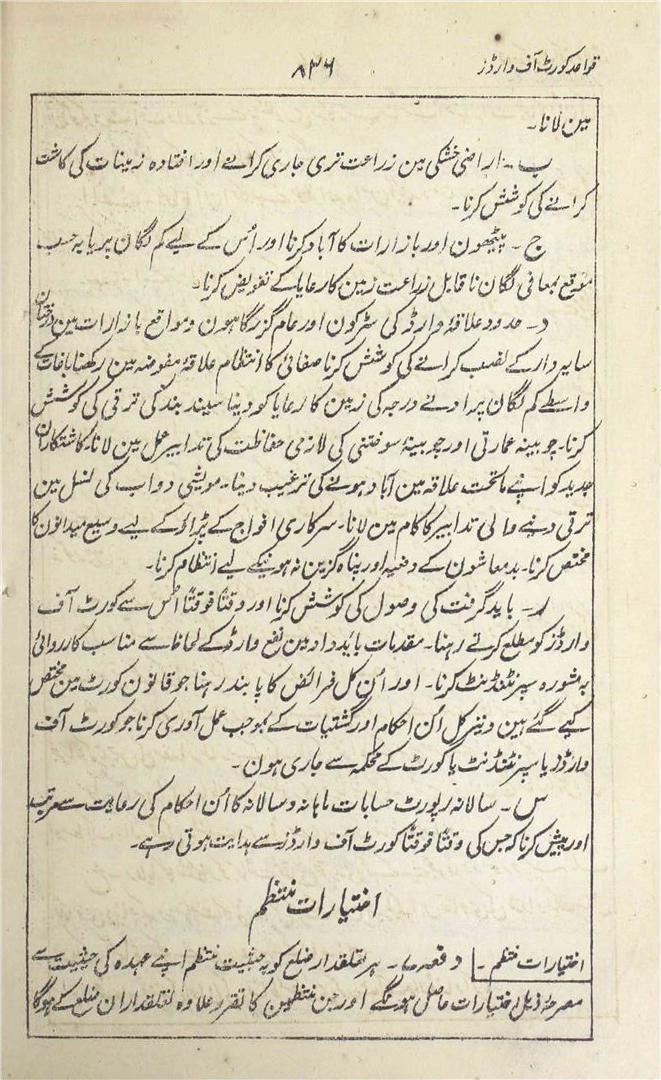 قواعد کورٹ آف وارڈز
۸۳۶
مین لانا۔
ب۔ اراضی خشکی مین زراعت تری جاری کرانے اور افتادہ زمینات کی کاشت
کرانے کی کوشش کرنا۔
ج۔ پیٹھون اور بازارات کا آباد کرنا اور اُس کے لیے کم لگان پر یا بہ حسب
موقع بمعافی لگان ناقابل زراعت زمین کا رعایا کے تفویض کرنا۔
د۔ حدود علاقۂ وارڈ کی سڑکون اور عام گزرگاہون و مواقع بازارات مین درختان
سایہ دار کے نصب کرانے کی کوشش کرنا صفائی کا انتظام علاقۂ مفوضہ مین رکھنا باغات کے
واسطے کم لگان پر ادنے درجہ کی زمین کا رعایا کو دینا سیندبند کی ترقی کی کوشش
کرنا۔ چوبینہ عمارتی اور چوبینۂ سوختنی کی لازمی حفاظت کی تدابیر عمل مین لانا۔ کاشتکاران
جدید کو اپنے ماتحت علاقہ مین آباد ہونے کی ترغیب دینا۔ مویشی دواب کی نسل مین
ترقی دینے والی تدابیر کا کام مین لانا۔ سرکاری افواج کے پڑاؤ کے لیے وسیع میدانون کا
مختص کرنا۔ بدمعاشون کے دفیہ اور پناہ گزین نہ ہونیکے لیے انتظام کرنا۔
ر۔ باید گرفت کی وصول کی کوشش کرنا اور وقتاً فوقتاً اُس سے کورٹ آف
وارڈز کو مطلع کرتے رہنا۔ مقدمات باید داد مین نفع وارڈ کے لحاظ سے مناسب کارروائی
بہ مشورہ سپرنٹنڈنٹ کرنا۔ اور اُن کل فرائض کا پابند رہنا جو قانون کورٹ مین مختص
کیے گئے ہین و نیز کل اُن احکام اور گشتیات کے بموجب عمل آوری کرنا جو کورٹ آف
وارڈز یا سپرنٹنڈنٹ یا کورٹ کے محکمہ سے جاری ہون۔
س۔ سالانہ رپورٹ حسابات ماہانہ و سالانہ کا اُن احکام کی رعایت سے مرتب
اور پیش کرنا کہ جس کی وقتاً فوقتاً کورٹ آف وارڈز سے ہدایت ہوتی رہے۔
اختیارات منتظم
اختیارات منتظم۔ دفعہ ۷۔ ہر تعلقدار ضلع کو بہ حیثیت منتظم اپنے عہدہ کی حیثیت سے
مصرحۂ ذیل اختیارات حاصل ہونگے اور جن منتظمین کا تقرر علاوہ تعلقداران ضلع کے ہوگا